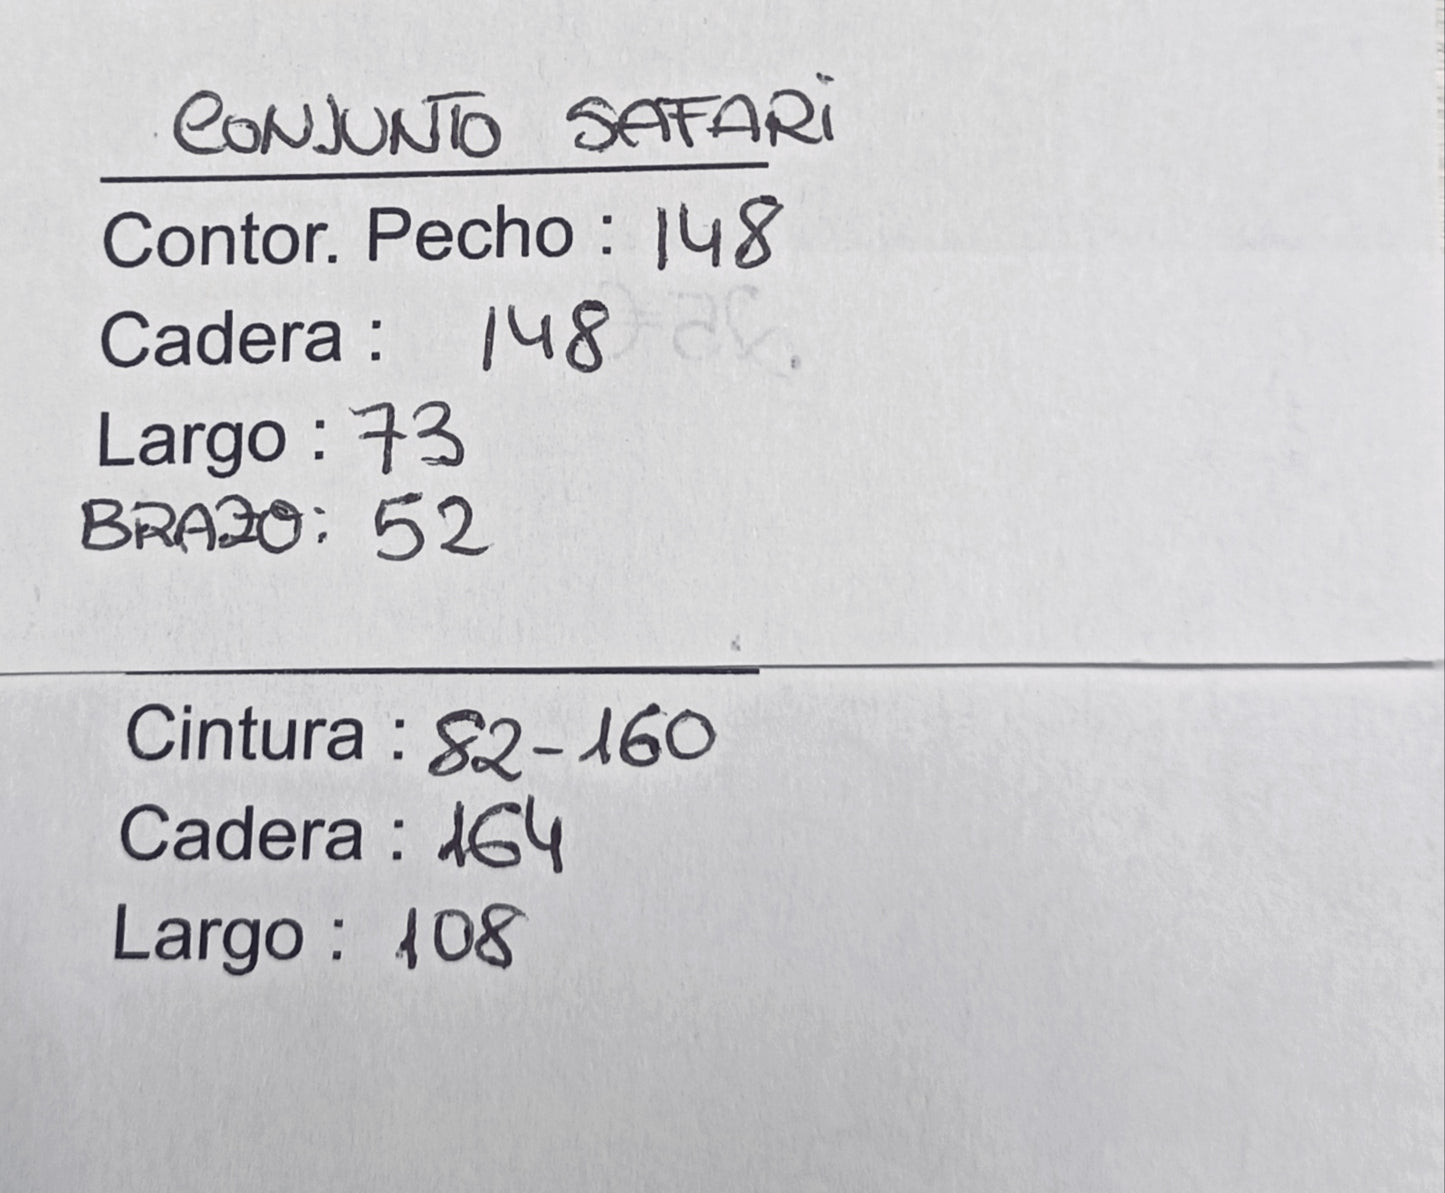 CONJUNTO SAFARi
Contor. Pecho : 148
Cadera : 148
Largo : 73
BRAZO: 52
Cintura : 82-160
Cadera : 164
Largo : 108